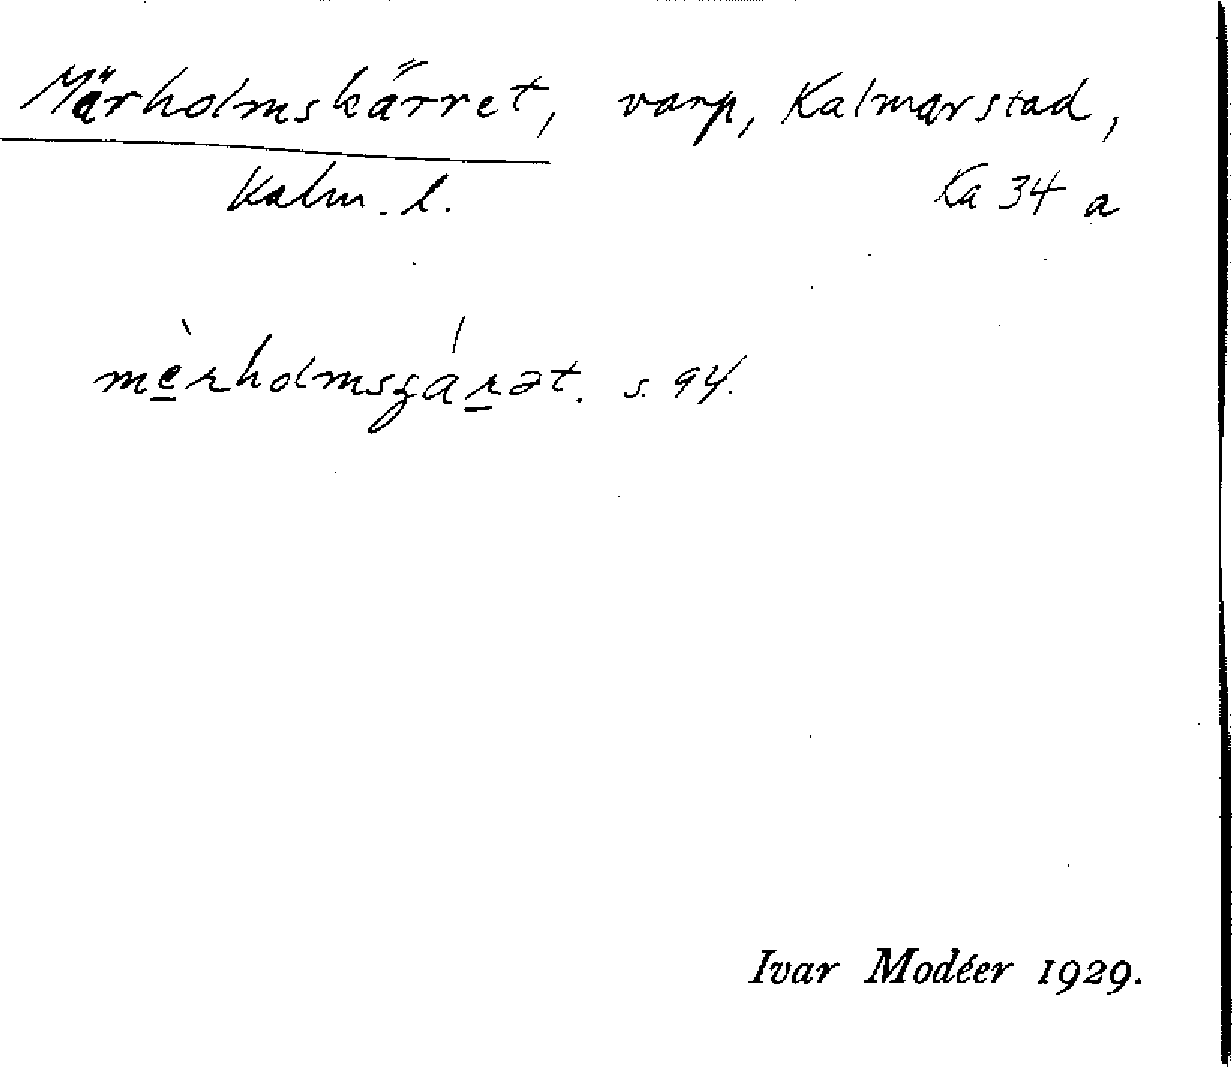 Märholmskärret, varp, Kalmar stad,
Kalm. l. Ka 34 a
s. 94.
Ivar Modéer 1929.